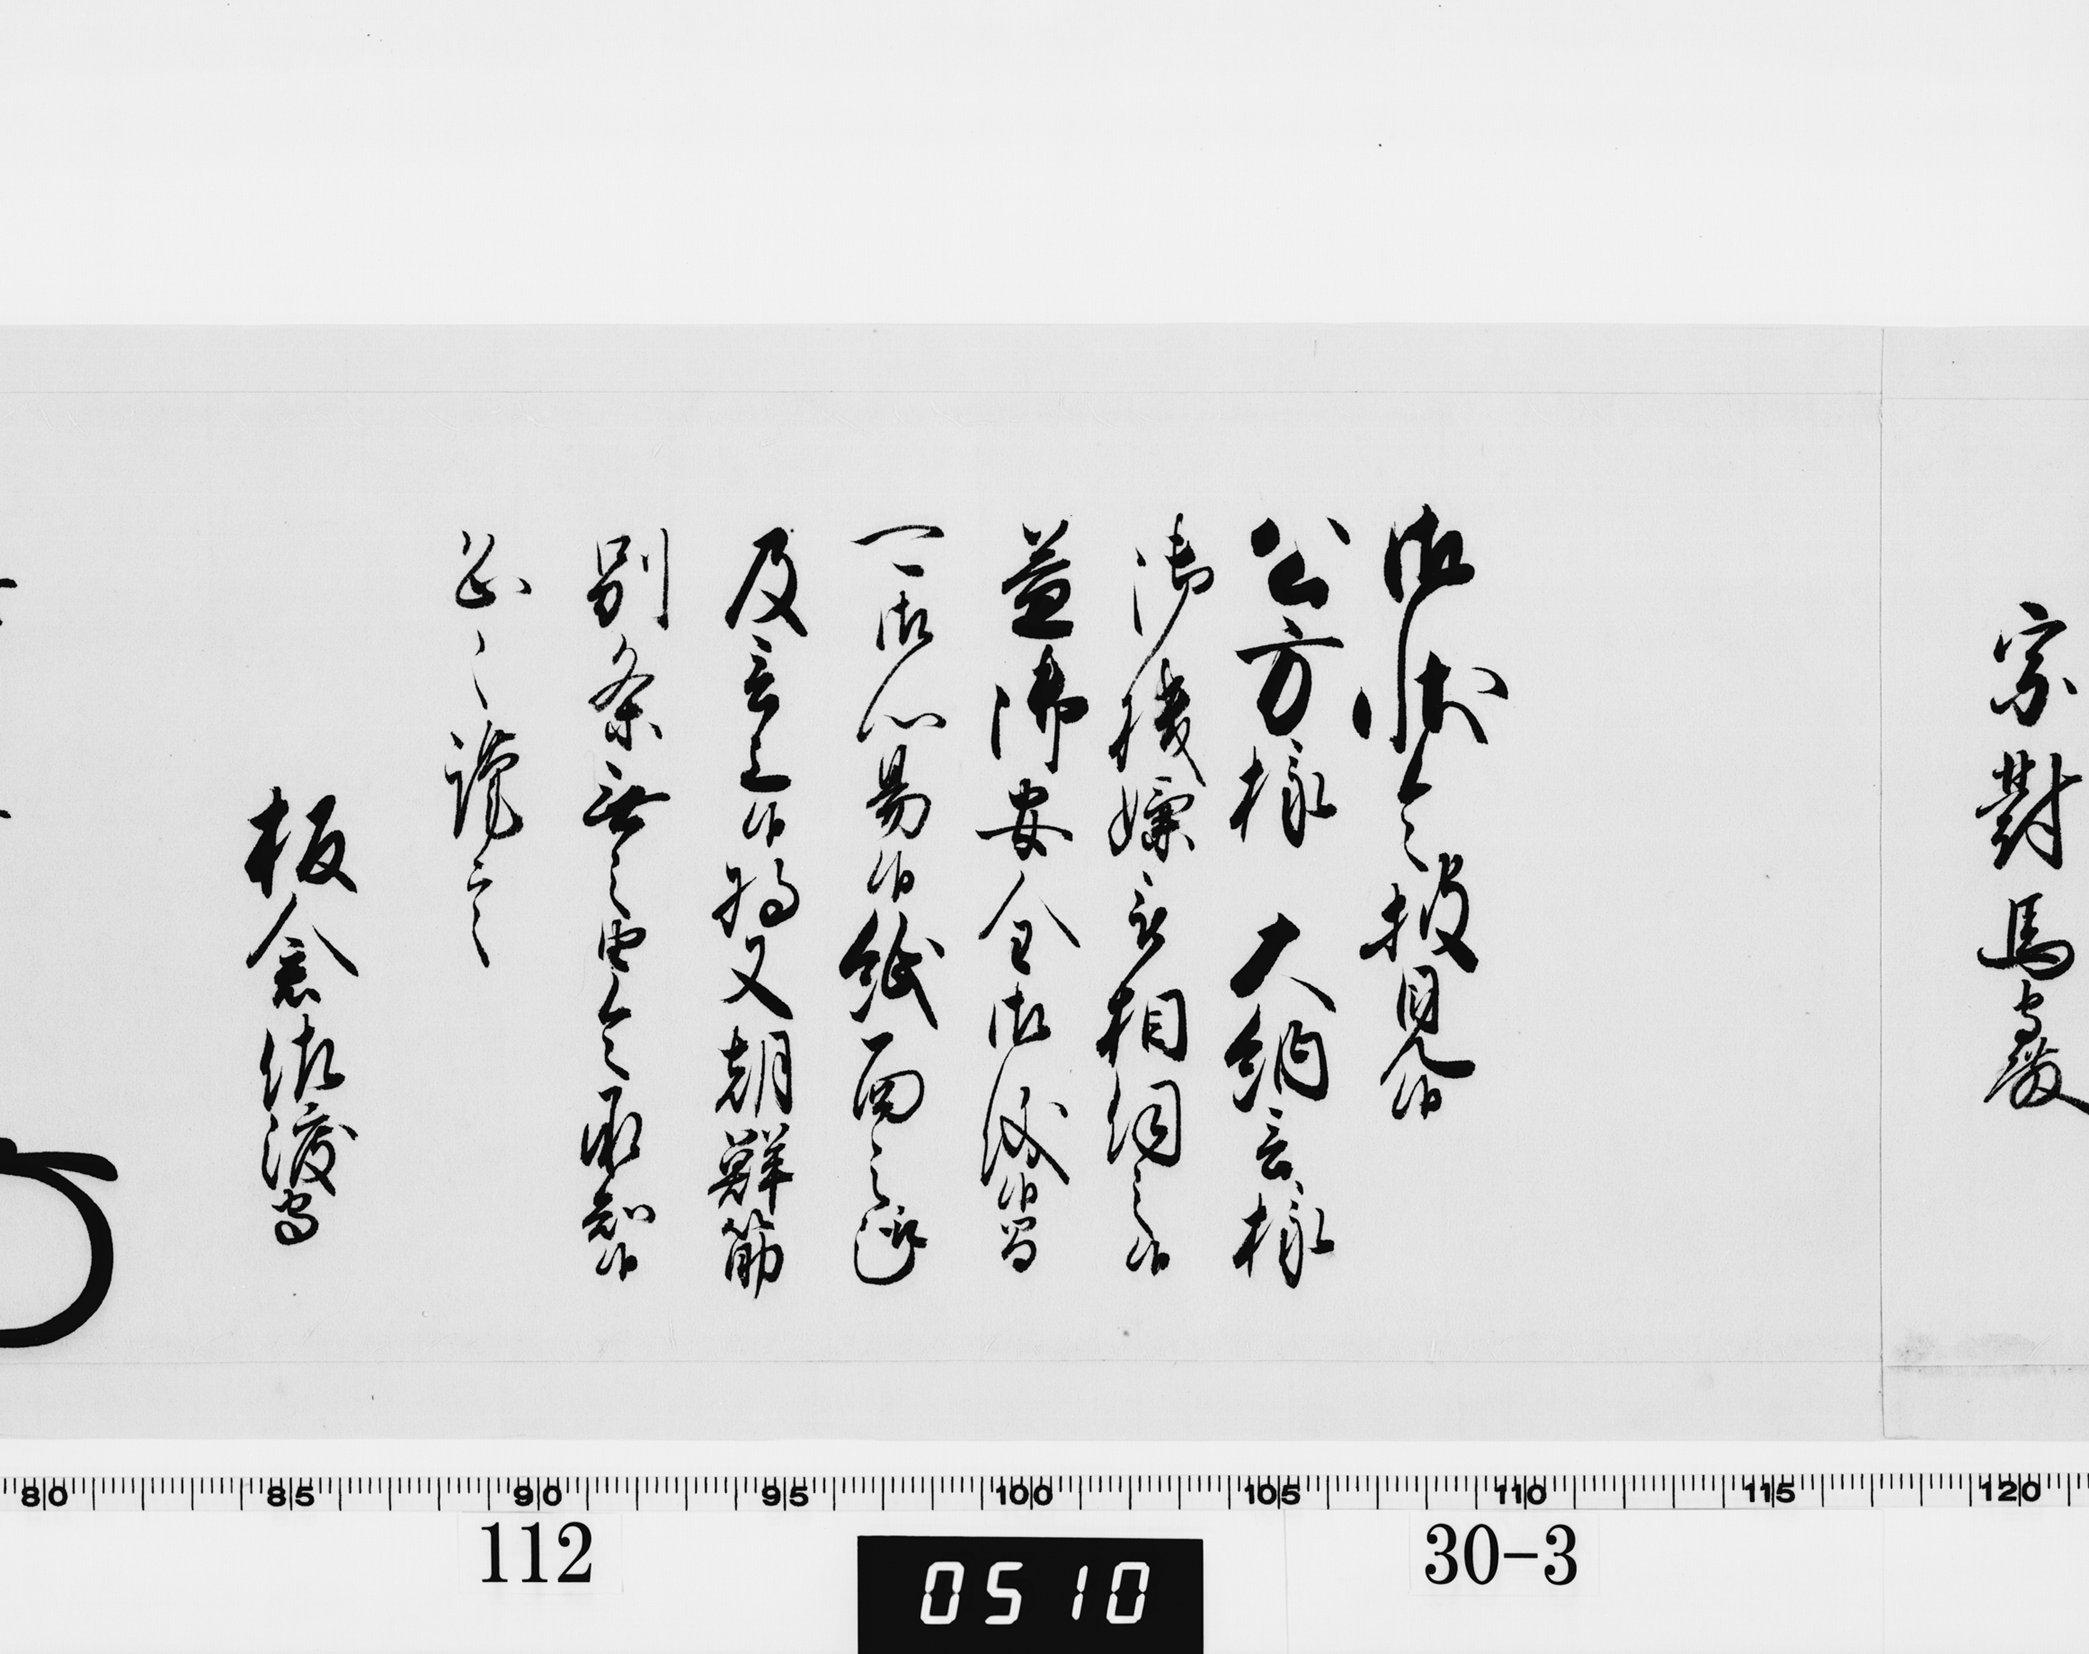 宗對馬守殿
御状令披見候
公方様 大納言様
御機嫌之相伺之候
益御安全御儀候間
可御心易候紙面之趣
及言上候将又朝鮮筋
別条無之由令承知候
恐々謹言
板倉佐渡守
80 85 90 95 100 105 110 115 120
112
0510
30-3